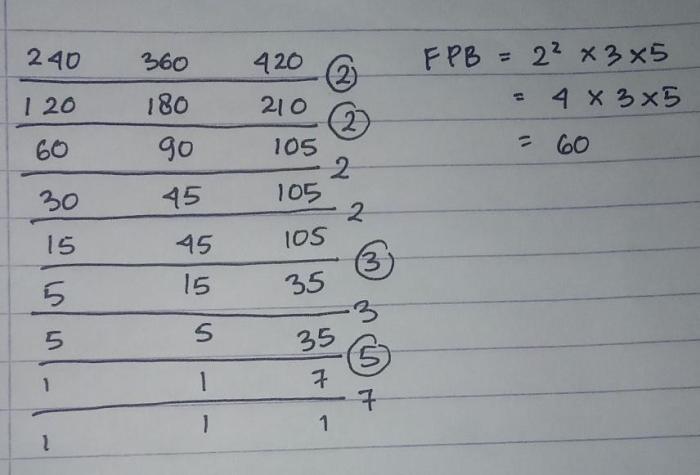 240 360 420 2
120 180 210 2
60 90 105 2
30 45 105 2
15 45 105 3
5 15 35 3
5 5 35 5
1 1 7 7
1 1 1
FPB = 2² × 3 × 5
= 4 × 3 × 5
= 60